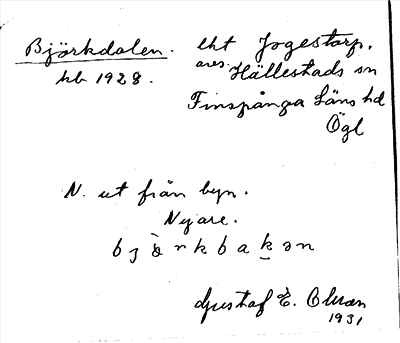 Björkdalen. lht Jogestorp,
kb 1928. ares. Hällestads sn
Finspånga Läns hd
Ögl
N. ut från byn.
Nyare.
Gustaf E. Olsson
1931